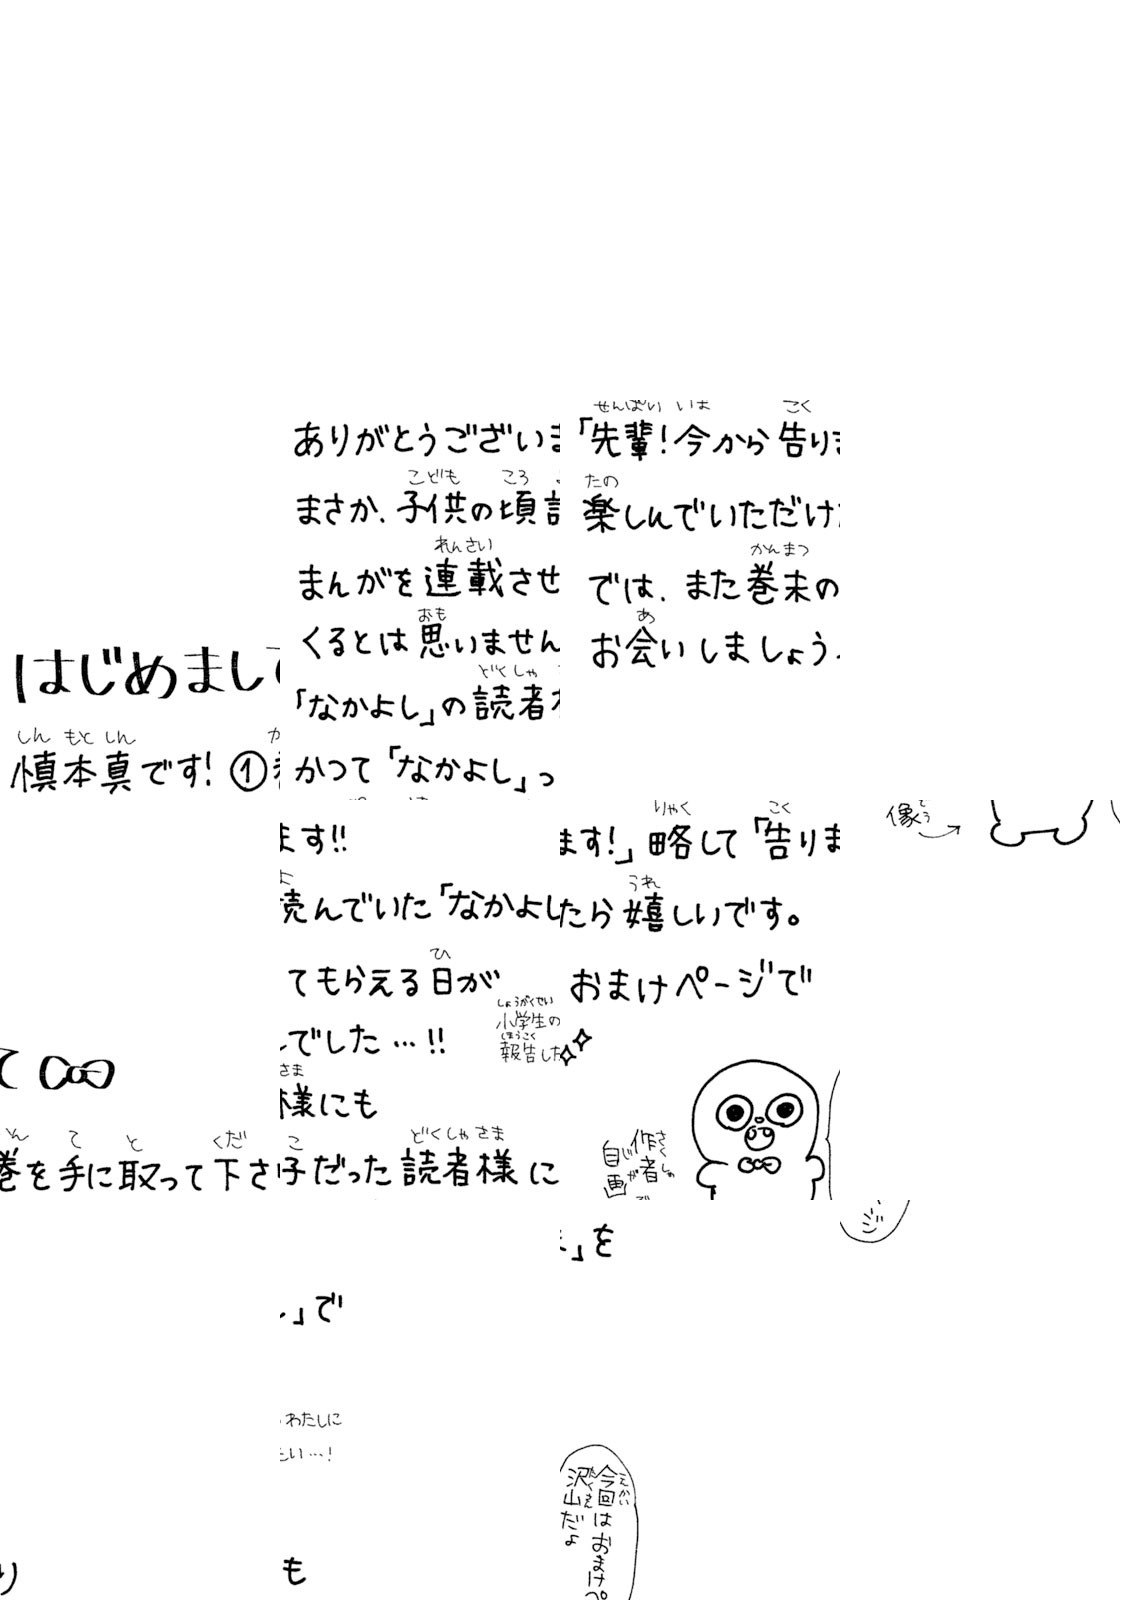 はじめまして
慎本真です!①巻を手に取って下さり
ありがとうございます!!
まさか、子供の頃読んでいた「なかよし」で
まんがを連載させてもらえる日が
くるとは思いませんでした…!!
小学生のわたしに
報告したい…!
「なかよし」の読者様にも
かつて「なかよし」っ子だった読者様にも
「先輩!今から告ります!」略して「告りま」を
楽しんでいただけたら嬉しいです。
では、また巻末のおまけページで
お会いしましょう
作者の
自画像
今回はおまけページ
沢山だよ